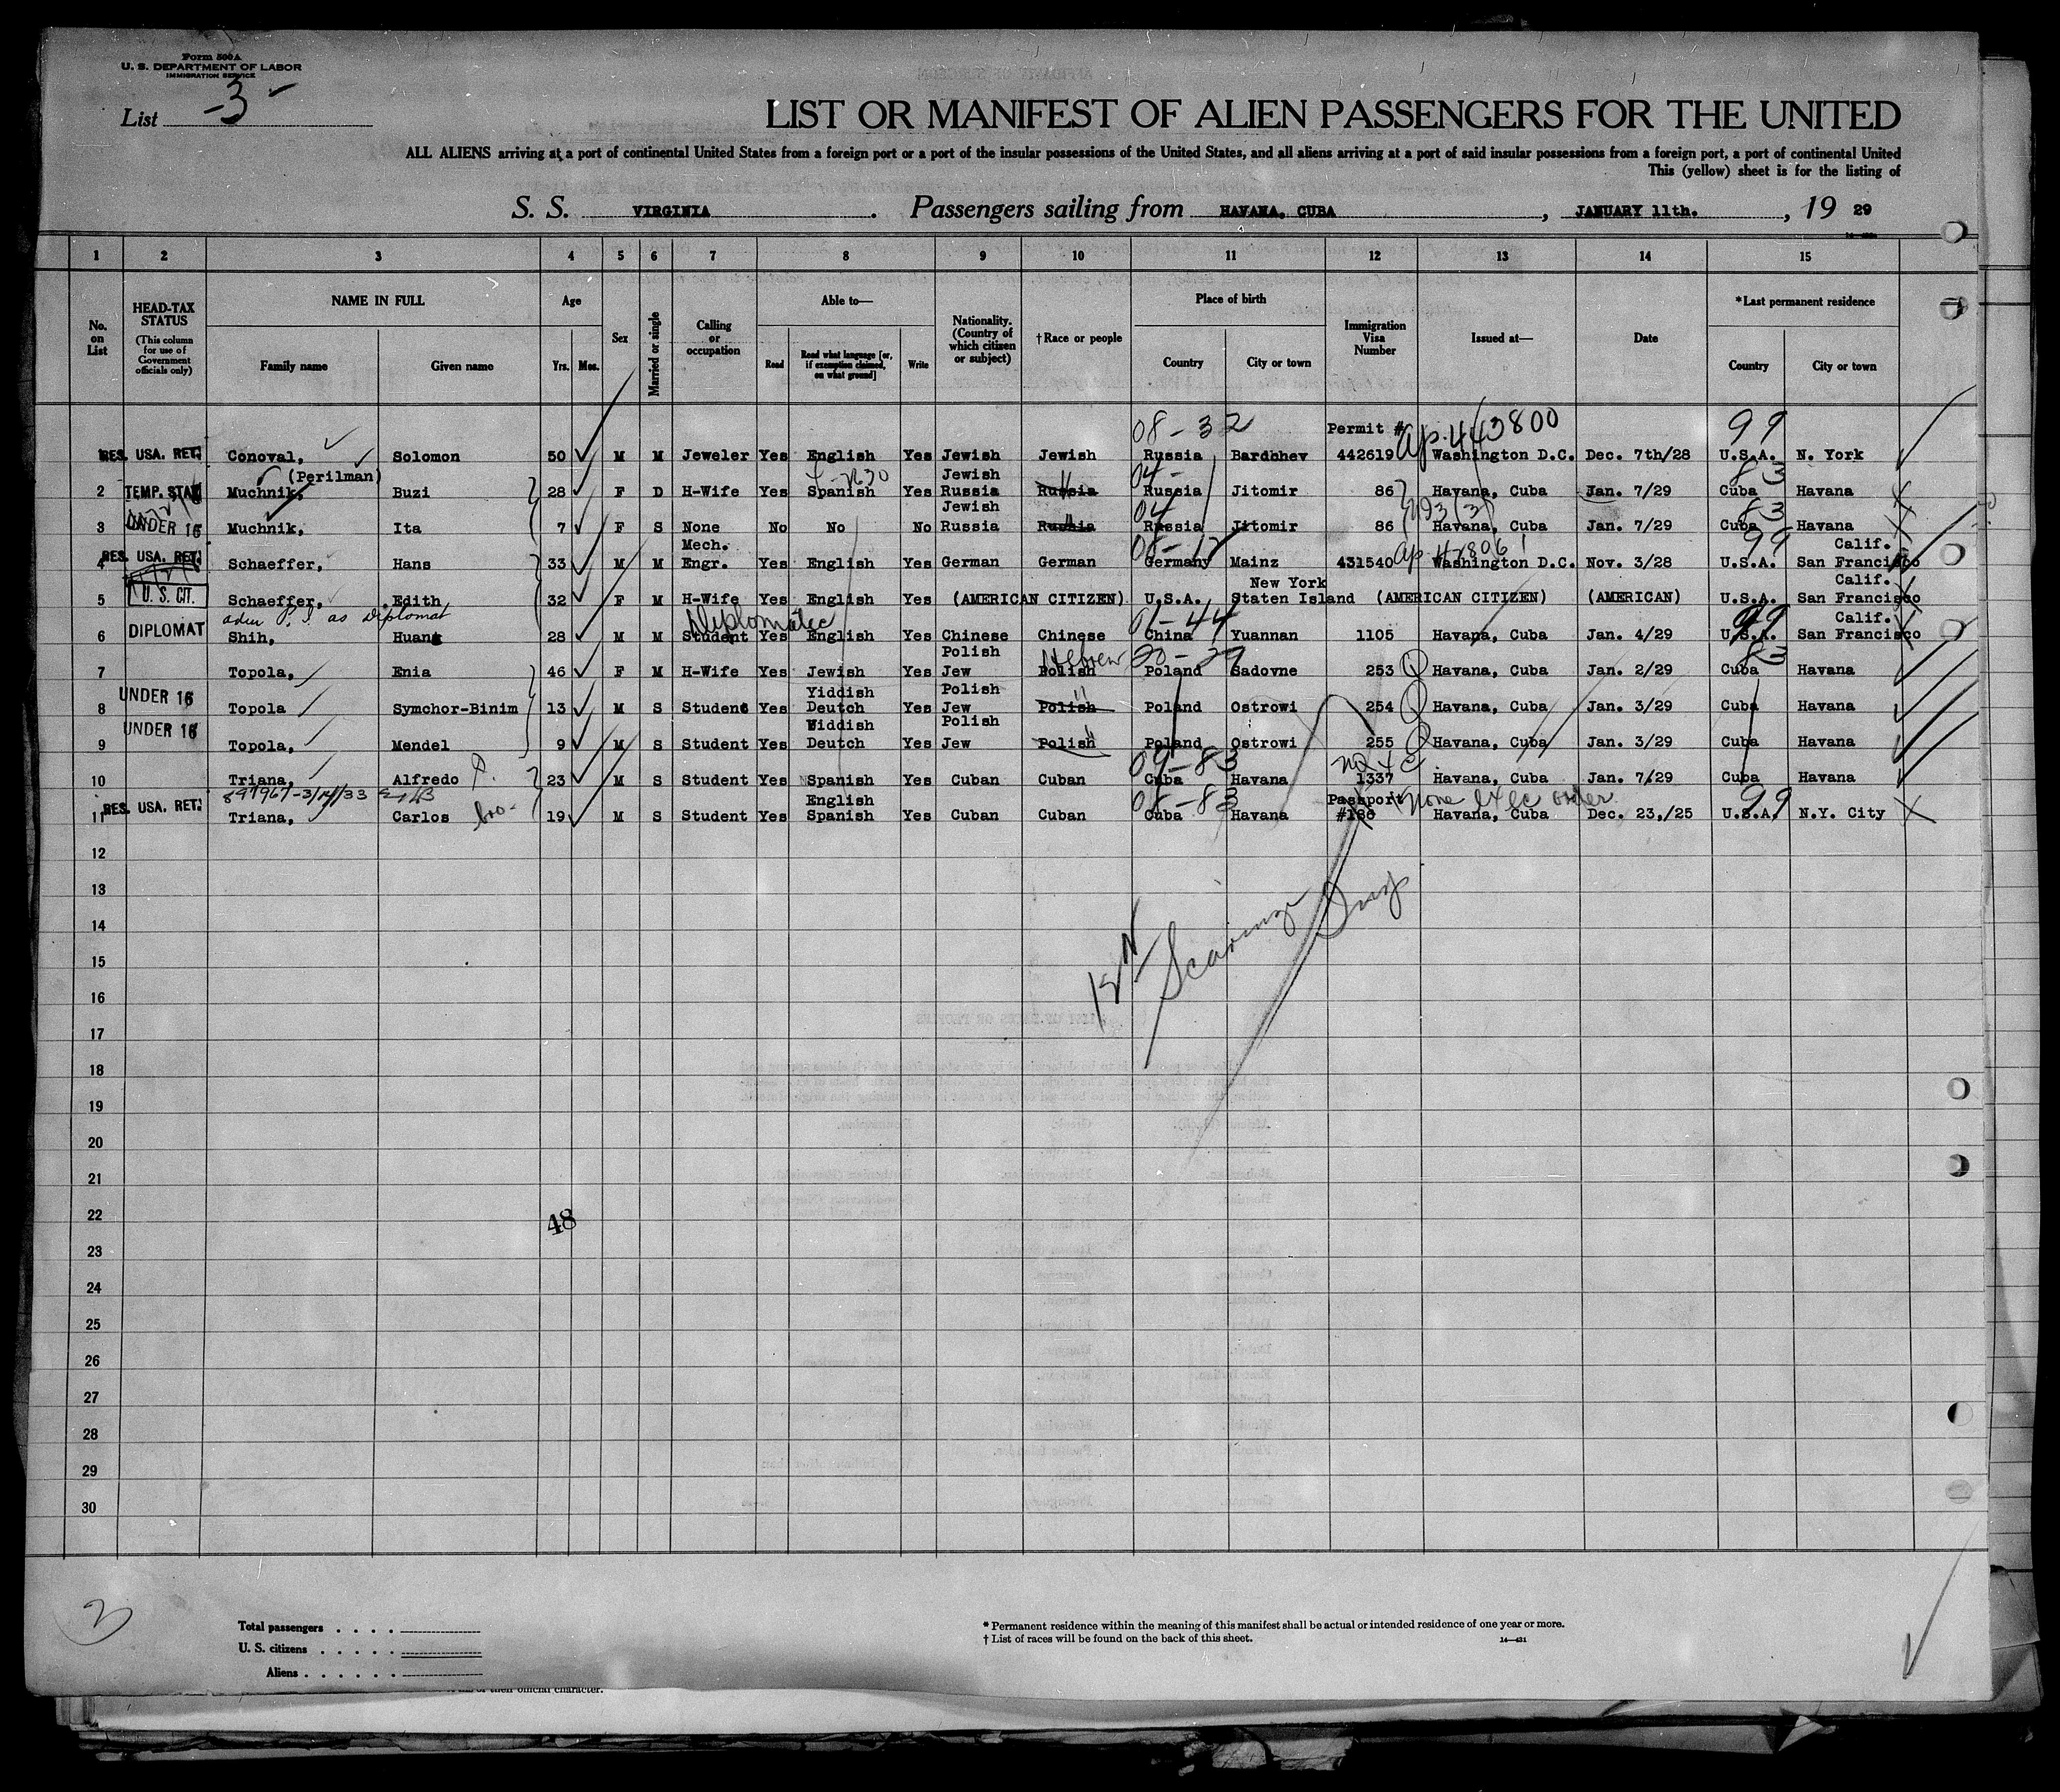 Form 500A
U. S. DEPARTMENT OF LABOR
IMMIGRATION SERVICE
List -3-
LIST OR MANIFEST OF ALIEN PASSENGERS FOR THE UNITED
ALL ALIENS arriving at a port of continental United States from a foreign port or a port of the insular possessions of the United States, and all aliens arriving at a port of said insular possessions from a foreign port, a port of continental United
This (yellow) sheet is for the listing of
S. S. VIRGINIA. Passengers sailing from HAVANA, CUBA, JANUARY 11th., 19 29
1 2 3 4 5 6 7 8 9 10 11 12 13 14 15
No. on List
HEAD-TAX STATUS
(This column for use of Government officials only)
NAME IN FULL
Family name Given name
Age
Yrs. Mos.
Sex
Married or single
Calling or occupation
Able to—
Read Read what language [or, if exemption claimed, on what ground] Write
Nationality. (Country of which citizen or subject)
†Race or people
Place of birth
Country City or town
Immigration Visa Number
Issued at—
Date
*Last permanent residence
Country City or town
08-32 Permit # Ap. 443800 99
RES. USA. RET. Conoval, Solomon 50 M M Jeweler Yes English Yes Jewish Jewish Russia Bardchev 442619 Washington D.C. Dec. 7th/28 U.S.A. N. York
(Perilman) Jewish 04- 83
2 TEMP. STAY Muchnik, Buzi 28 F D H-Wife Yes Spanish Yes Russia Russia Russia Jitomir 86 Havana, Cuba Jan. 7/29 Cuba Havana
Jewish 04 83
3 UNDER 16 Muchnik, Ita 7 F S None No No No Russia Russia Russia Jitomir 86 Havana, Cuba Jan. 7/29 Cuba Havana
Mech. 99 Calif.
4 RES. USA. RET. Schaeffer, Hans 33 M M Engr. Yes English Yes German German Germany Mainz 431540 Washington D.C. Nov. 3/28 U.S.A. San Francisco
New York Calif.
5 U. S. CIT. Schaeffer, Edith 32 F M H-Wife Yes English Yes (AMERICAN CITIZEN) U.S.A. Staten Island (AMERICAN CITIZEN) (AMERICAN) U.S.A. San Francisco
as Diplomat Diplomatic 01-44 99 Calif.
6 DIPLOMAT Shih, Huang 28 M M Student Yes English Yes Chinese Chinese China Yuannan 1105 Havana, Cuba Jan. 4/29 U.S.A. San Francisco
Polish Hebrew 20-29 83
7 Topola, Enia 46 F M H-Wife Yes Jewish Yes Jew Polish Poland Sadovne 253 Havana, Cuba Jan. 2/29 Cuba Havana
Yiddish Polish
8 UNDER 16 Topola Symchor-Binim 13 M S Student Yes Deutch Yes Jew Polish Poland Ostrowi 254 Havana, Cuba Jan. 3/29 Cuba Havana
Widdish Polish
9 UNDER 16 Topola, Mendel 9 M S Student Yes Deutch Yes Jew Polish Poland Ostrowi 255 Havana, Cuba Jan. 3/29 Cuba Havana
09-83
10 Triana, Alfredo 23 M S Student Yes Spanish Yes Cuban Cuban Cuba Havana 1337 Havana, Cuba Jan. 7/29 Cuba Havana
English 08-83 Passport none exec order 99
11 RES. USA. RET. Triana, Carlos bro- 19 M S Student Yes Spanish Yes Cuban Cuban Cuba Havana Havana, Cuba Dec. 23,/25 U.S.A. N.Y. City
12
13
14
15
16
17
18
19
20
21
22
48
23
24
25
26
27
28
29
30
Total passengers
U. S. citizens
Aliens
* Permanent residence within the meaning of this manifest shall be actual or intended residence of one year or more.
† List of races will be found on the back of this sheet.
14—421
of their official character.